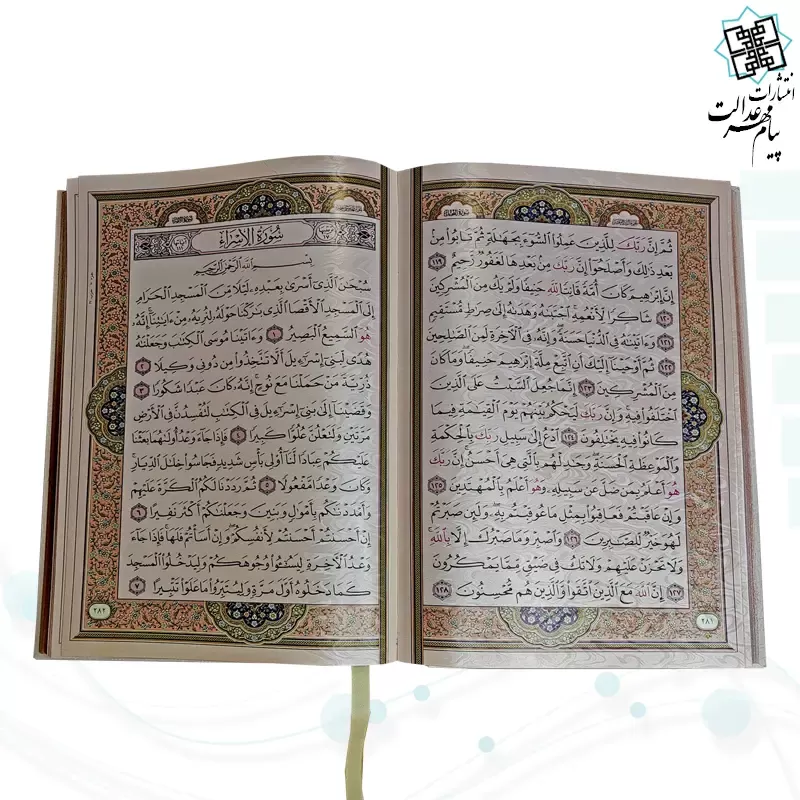 انتشارات
پیام مهر عدالت
ثُمَّ إِنَّ رَبَّكَ لِلَّذِينَ عَمِلُوا السُّوءَ بِجَهَالَةٍ ثُمَّ تَابُوا مِنْ
بَعْدِ ذَٰلِكَ وَأَصْلَحُوا إِنَّ رَبَّكَ مِنْ بَعْدِهَا لَغَفُورٌ رَحِيمٌ ١١٩
إِنَّ إِبْرَاهِيمَ كَانَ أُمَّةً قَانِتًا لِلَّهِ حَنِيفًا وَلَمْ يَكُ مِنَ الْمُشْرِكِينَ
١٢٠ شَاكِرًا لِأَنْعُمِهِ اجْتَبَاهُ وَهَدَاهُ إِلَىٰ صِرَاطٍ مُسْتَقِيمٍ
١٢١ وَآتَيْنَاهُ فِي الدُّنْيَا حَسَنَةً وَإِنَّهُ فِي الْآخِرَةِ لَمِنَ الصَّالِحِينَ
١٢٢ ثُمَّ أَوْحَيْنَا إِلَيْكَ أَنِ اتَّبِعْ مِلَّةَ إِبْرَاهِيمَ حَنِيفًا وَمَا كَانَ
مِنَ الْمُشْرِكِينَ ١٢٣ إِنَّمَا جُعِلَ السَّبْتُ عَلَى الَّذِينَ
اخْتَلَفُوا فِيهِ وَإِنَّ رَبَّكَ لَيَحْكُمُ بَيْنَهُمْ يَوْمَ الْقِيَامَةِ فِيمَا
كَانُوا فِيهِ يَخْتَلِفُونَ ١٢٤ ادْعُ إِلَىٰ سَبِيلِ رَبِّكَ بِالْحِكْمَةِ
وَالْمَوْعِظَةِ الْحَسَنَةِ وَجَادِلْهُمْ بِالَّتِي هِيَ أَحْسَنُ إِنَّ رَبَّكَ
هُوَ أَعْلَمُ بِمَنْ ضَلَّ عَنْ سَبِيلِهِ وَهُوَ أَعْلَمُ بِالْمُهْتَدِينَ ١٢٥
وَإِنْ عَاقَبْتُمْ فَعَاقِبُوا بِمِثْلِ مَا عُوقِبْتُمْ بِهِ وَلَئِنْ صَبَرْتُمْ
لَهُوَ خَيْرٌ لِلصَّابِرِينَ ١٢٦ وَاصْبِرْ وَمَا صَبْرُكَ إِلَّا بِاللَّهِ
وَلَا تَحْزَنْ عَلَيْهِمْ وَلَا تَكُ فِي ضَيْقٍ مِمَّا يَمْكُرُونَ
١٢٧ إِنَّ اللَّهَ مَعَ الَّذِينَ اتَّقَوْا وَالَّذِينَ هُمْ مُحْسِنُونَ ١٢٨
٢٨١
سُورَةُ الْإِسْرَاءِ
بِسْمِ اللَّهِ الرَّحْمَٰنِ الرَّحِيمِ
سُبْحَانَ الَّذِي أَسْرَىٰ بِعَبْدِهِ لَيْلًا مِنَ الْمَسْجِدِ الْحَرَامِ
إِلَى الْمَسْجِدِ الْأَقْصَا الَّذِي بَارَكْنَا حَوْلَهُ لِنُرِيَهُ مِنْ آيَاتِنَا إِنَّهُ
هُوَ السَّمِيعُ الْبَصِيرُ ١ وَآتَيْنَا مُوسَى الْكِتَابَ وَجَعَلْنَاهُ
هُدًى لِبَنِي إِسْرَائِيلَ أَلَّا تَتَّخِذُوا مِنْ دُونِي وَكِيلًا ٢
ذُرِّيَّةَ مَنْ حَمَلْنَا مَعَ نُوحٍ إِنَّهُ كَانَ عَبْدًا شَكُورًا ٣
وَقَضَيْنَا إِلَىٰ بَنِي إِسْرَائِيلَ فِي الْكِتَابِ لَتُفْسِدُنَّ فِي الْأَرْضِ
مَرَّتَيْنِ وَلَتَعْلُنَّ عُلُوًّا كَبِيرًا ٤ فَإِذَا جَاءَ وَعْدُ أُولَاهُمَا بَعَثْنَا
عَلَيْكُمْ عِبَادًا لَنَا أُولِي بَأْسٍ شَدِيدٍ فَجَاسُوا خِلَالَ الدِّيَارِ
وَكَانَ وَعْدًا مَفْعُولًا ٥ ثُمَّ رَدَدْنَا لَكُمُ الْكَرَّةَ عَلَيْهِمْ
وَأَمْدَدْنَاكُمْ بِأَمْوَالٍ وَبَنِينَ وَجَعَلْنَاكُمْ أَكْثَرَ نَفِيرًا ٦
إِنْ أَحْسَنْتُمْ أَحْسَنْتُمْ لِأَنْفُسِكُمْ وَإِنْ أَسَأْتُمْ فَلَهَا فَإِذَا جَاءَ
وَعْدُ الْآخِرَةِ لِيَسُوءُوا وُجُوهَكُمْ وَلِيَدْخُلُوا الْمَسْجِدَ
كَمَا دَخَلُوهُ أَوَّلَ مَرَّةٍ وَلِيُتَبِّرُوا مَا عَلَوْا تَتْبِيرًا ٧
٢٨٢